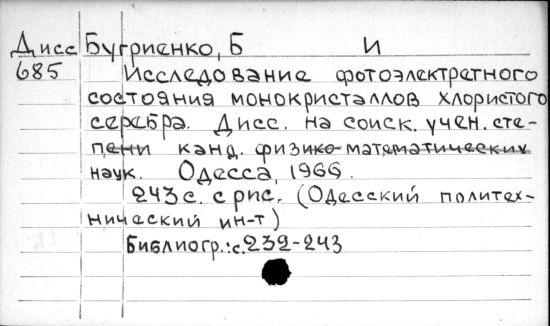 Дисс Бугриенко, Б И
685 Исследование фотоэлектретного
состояния монокристаллов хлористого
серебра. Дисс. на соиск. учен. сте-
пени канд. физико-математических
наук. Одесса, 1966.
243 с. с рис. (Одесский политех-
нический ин-т)
Библиогр.: с. 232-243